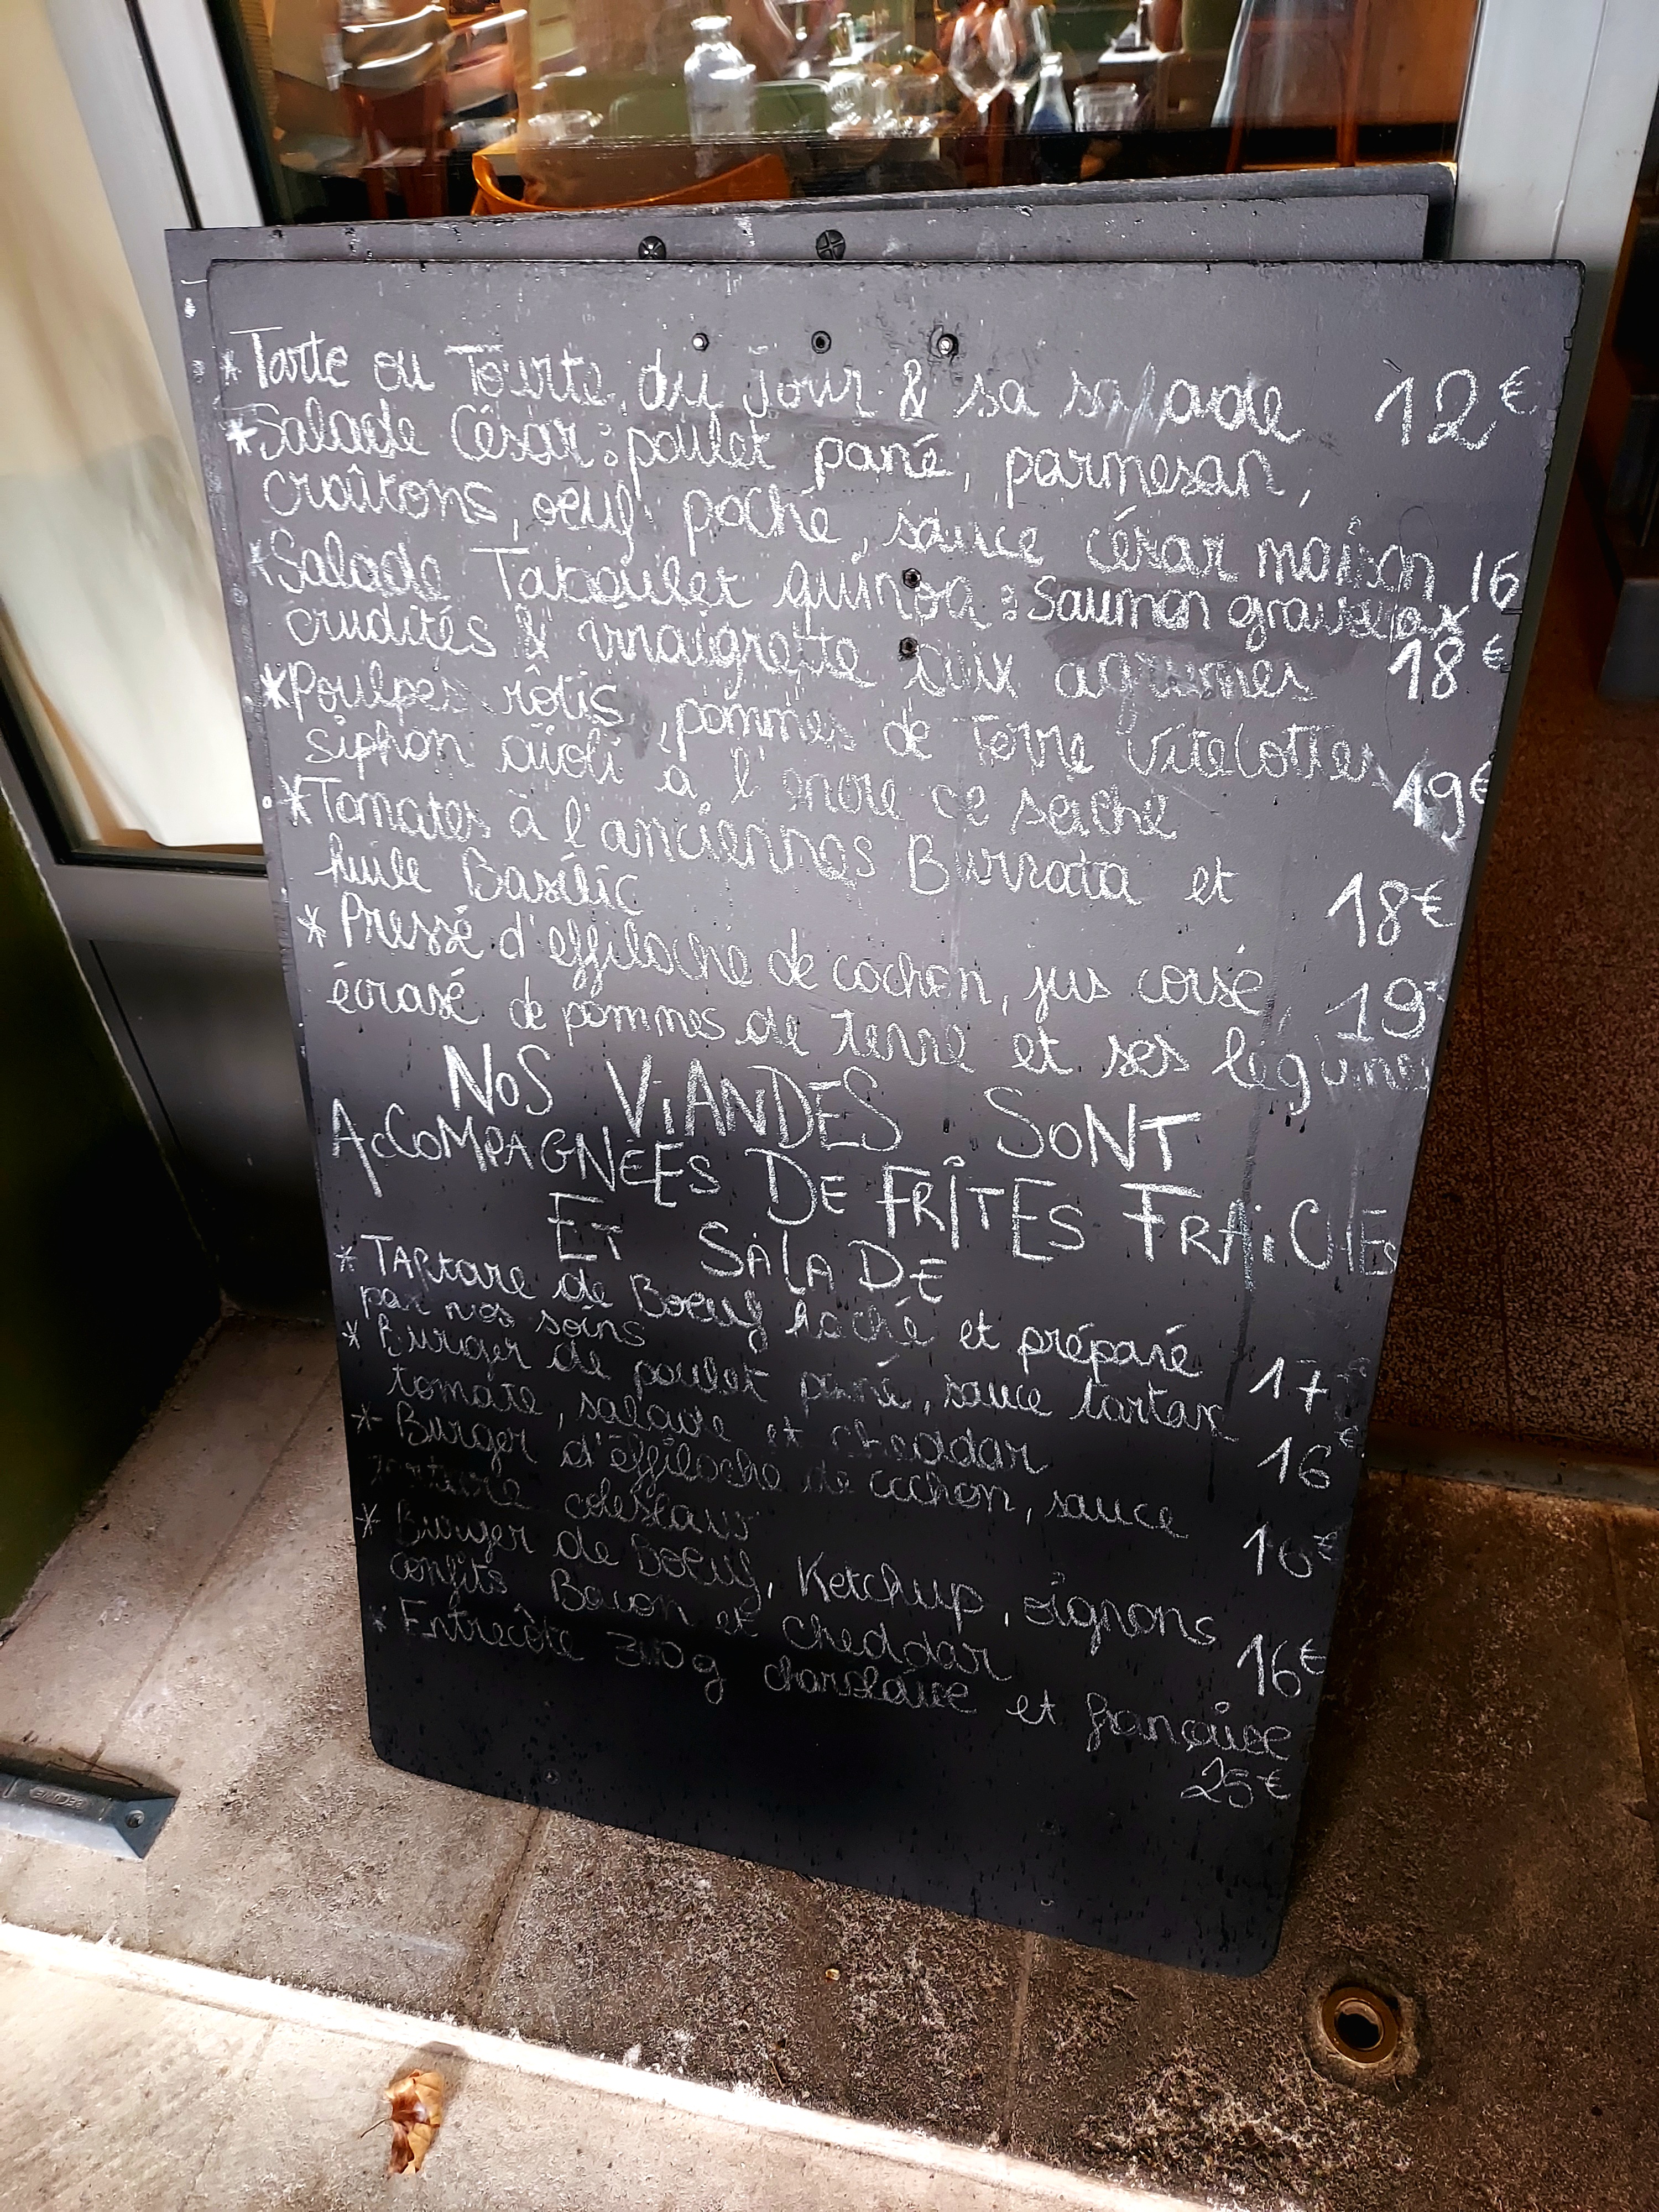 * Tarte ou Tourte du Jour & sa salade 12€
* Salade César : poulet pané, parmesan,
croûtons, oeuf poché, sauce césar maison 16
* Salade Taboulet quinoa : Saumon gravelax
crudités & vinaigrette aux agrumes 18€
* Poulpes rôtis, pommes de Terre Vitelottes
siphon aïoli à l'encre de seiche 19€
* Tomates à l'anciennes Burrata et
huile Basilic 18€
* Pressé d'effiloché de cochon, jus corsé, 19€
écrasé de pommes de terre et ses légumes
NOS VIANDES SONT
ACCOMPAGNÉES DE FRÎTES FRAICHES
ET SALADE
* TARtare de Boeuf haché et préparé
par nos soins 17€
* Burger de poulet pané, sauce tartare
tomate, salade et cheddar 16€
* Burger d'éffiloché de cochon, sauce
tartare coleslaw 16€
* Burger de Boeuf, Ketchup, oignons
confits Bacon et cheddar 16€
* Entrecôte 300g charolaise et française
25€